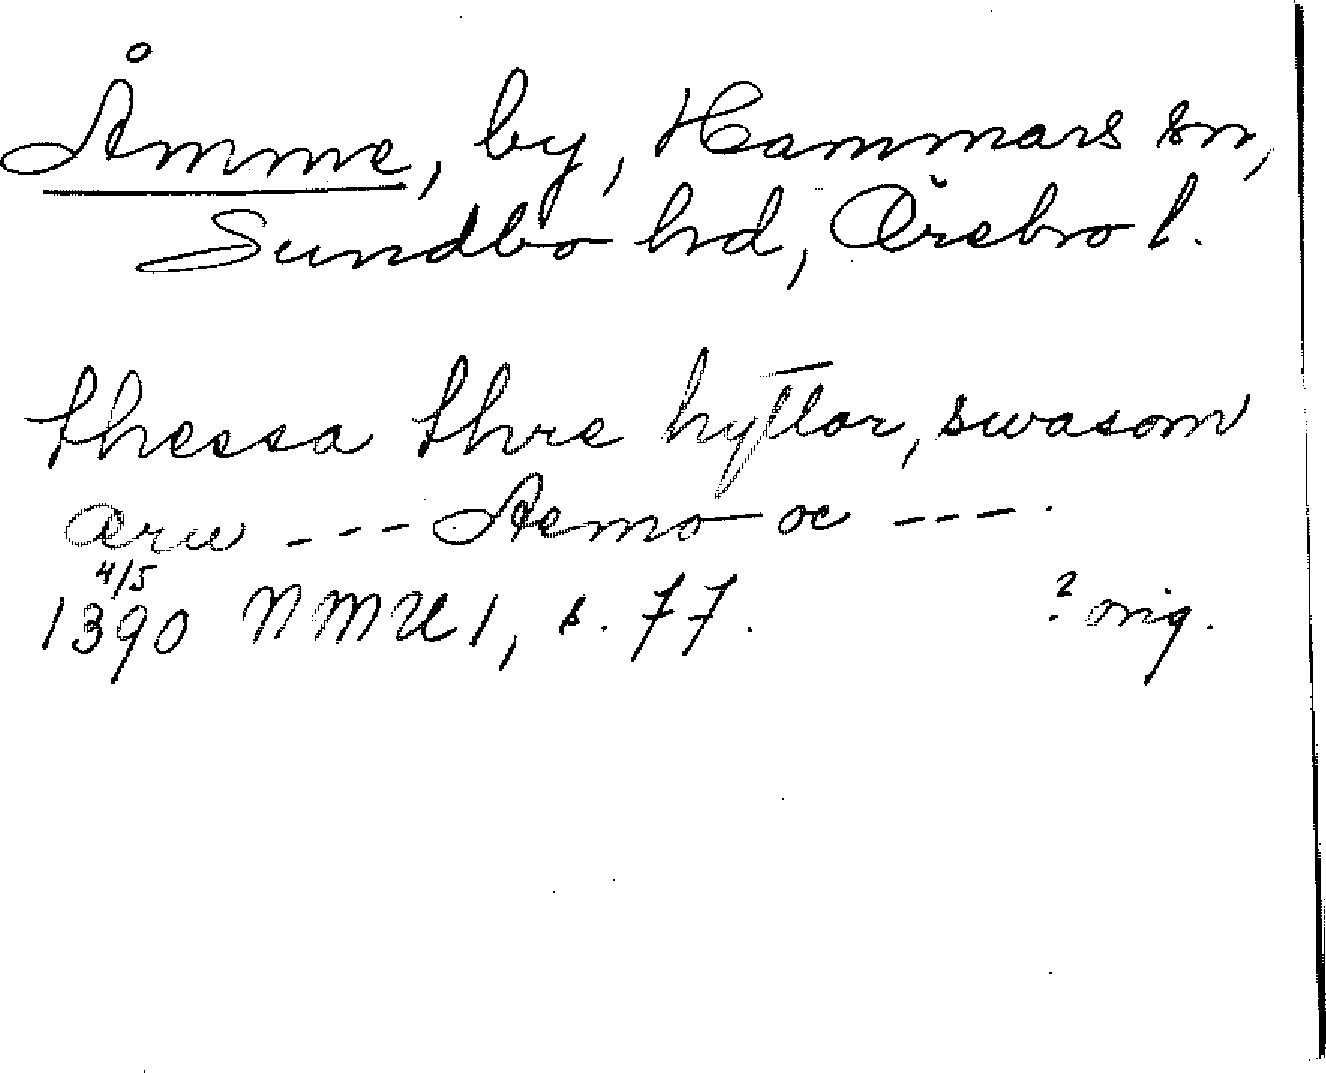 Åmme, by, Hammars sn,
Sundbo hd, Örebro l.
thessa thre hyttar, swasom
æru --- Aemo oc ---.
4/5
1390 NMU 1, s. 77. ? orig.